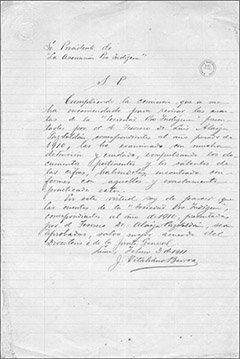 Sr. Presidente de
"La Asociación Pro Indígena"
S. P.
Cumpliendo la comisión que a mi
ha encomendado para revisar las cuen-
tas de la "Sociedad Pro Indígena" presen-
tadas por el S. Tesorero Dr. Luis Alayza
correspondientes al año de
1910, las he examinado con mucho
detenimiento y cuidado, comprobando los do-
cumentos pertinentes y los saldos de
las cifras, habiéndolas encontrado con-
formes con aquellos y exactamente
practicadas estas.
En esta virtud soy de parecer que
las cuentas de la "Sociedad Pro Indígena",
correspondientes al año de 1910, presentadas
por el Tesorero Dr. Alayza, sean
aprobadas, salvo mejor acuerdo del
Directorio o de la Junta General.
Lima, Febrero de 1911
J. Vitaliano Berroa